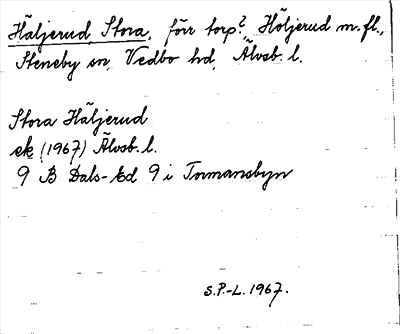 Häljerud, Stora, förr torp?, Höljerud m.fl.,
Steneby sn, Vedbo hd, Älvsb. l.
Stora Häljerud
ek (1967) Älvsb. l.
9 B Dals-Ed 9 i Tormansbyn
S.P.-L. 1967.